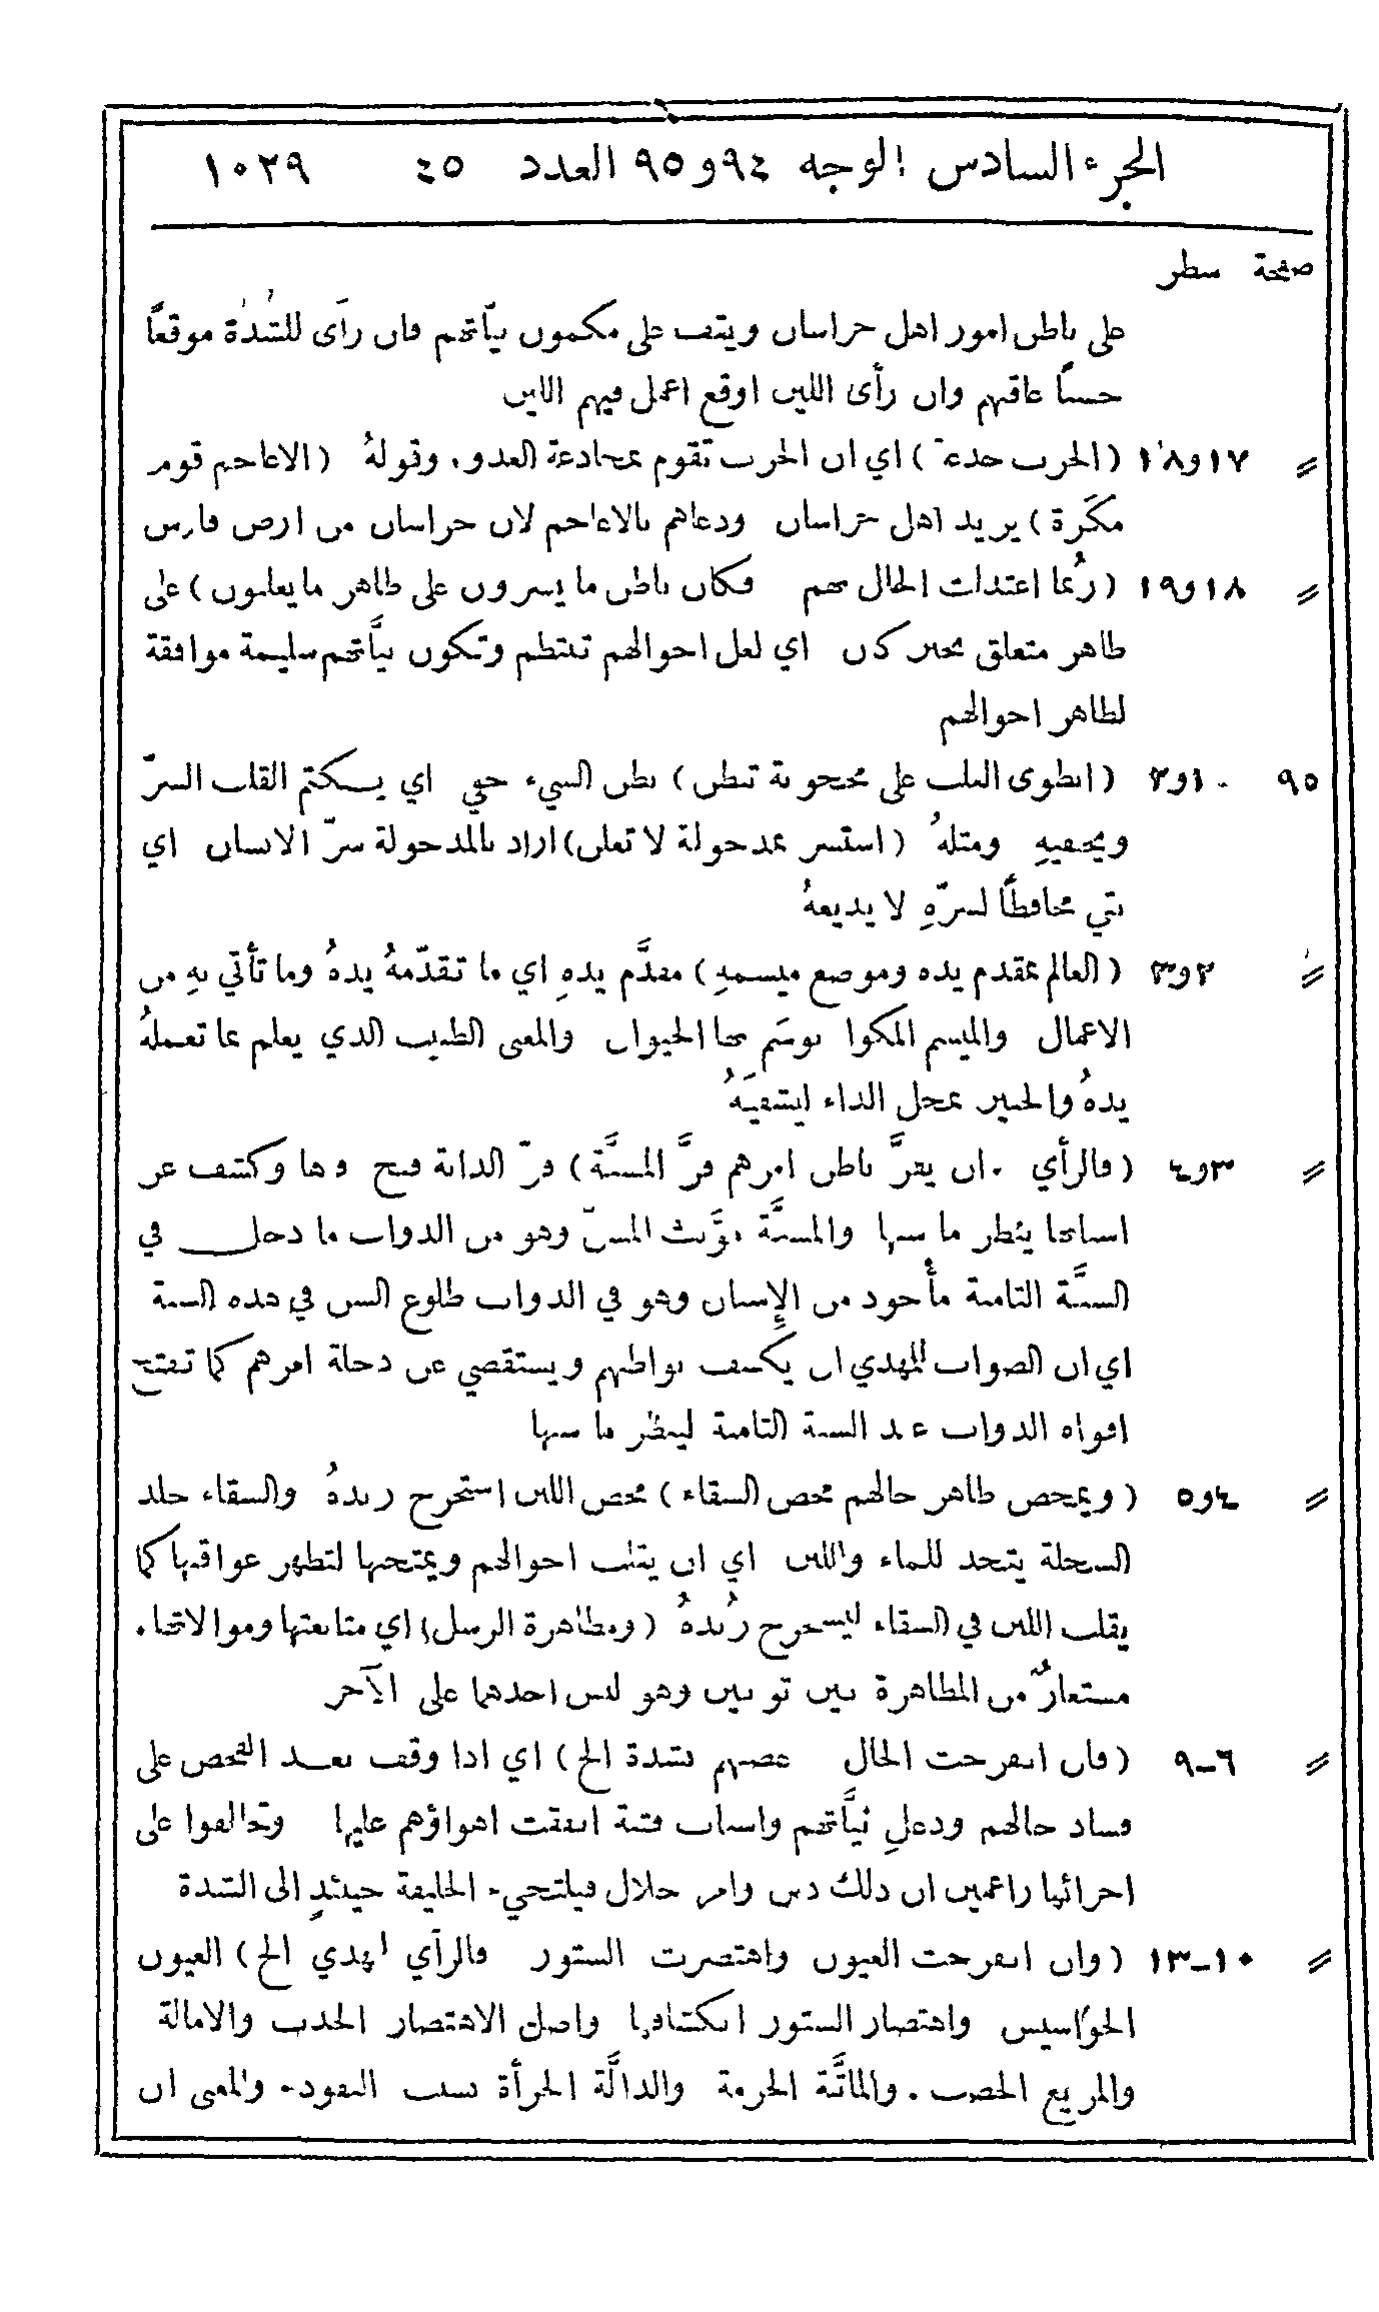 الجزء السادس الوجه ٩٤ و٩٥ العدد ٤٥ ١٠٢٩
صفحة سطر
على باطن امور اهل خراسان ويقف على مكمون نيّاتهم فان رأى للشدة موقعاً
حسناً عاقبهم وان رأى اللين اوقع اعمل فيهم اللين
〃 ١٧ و١٨ (الحرب خدعة) اي ان الحرب تقوم بمخادعة العدو. وقولهُ (الاعاجم قوم
مكَرة) يريد اهل خراسان ودعاهم بالاعاجم لان خراسان من ارض فارس
〃 ١٨ و١٩ (ربُما اعتدلت الحال بهم فكان باطن ما يسرون على ظاهر ما يعلنون) على
ظاهر متعلق بخبر كان اي لعل احوالهم تنتظم وتكون نيَّاتهم سليمة موافقة
لظاهر احوالهم
٩٥ ١و٢ (انطوى القلب على محجوبة تبطن) بطن الشيء خفي اي يستكتم القلب السرّ
ويخفيهِ ومثلهُ (استسر بمدخولة لا تعلن) اراد بالمدخولة سرّ الانسان اي
بقي محافظاً لسرّهِ لا يذيعهُ
〃 ٢و٣ (العالم بمقدم يده وموضع ميسمهِ) مقدَّم يدهِ اي ما تقدّمهُ يدهُ وما تأتي بهِ من
الاعمال والميسم المكوا يوسَم بها الحيوان والمعنى الطبيب الذي يعلم بما تعملهُ
يدهُ والخبير بمحل الداء ليشفيَهُ
〃 ٣و٤ (فالرأي ان يفرَّ باطن امرهم فرَّ المسنَّة) فرّ الدابة فتح فاها وكشف عن
اسنانها ينظر ما سنها والمسنَّة مؤَنث المسنّ وهو من الدواب ما دخل في
السنَّة الثامنة مأخوذ من الإسنان وهو في الدواب طلوع السن في هذه السنة
اي ان الصواب للمهدي ان يكشف بواطنهم ويستقصي عن دخلة امرهم كما تفتح
افواه الدواب عند السنة الثامنة لينظر ما سنها
〃 ٤و٥ (ويمخض ظاهر حالهم مخض السقاء) مخض اللبن استخرج زبدهُ والسقاء جلد
السخلة يتخذ للماء واللبن اي ان يقلب احوالهم ويمتحنها لتظهر عواقبها كما
يقلب اللبن في السقاء ليستخرج زُبدهُ (ومظاهرة الرسل) اي متابعتها وموالاتها.
مستعارٌ من المظاهرة بين ثوبين وهو لبس احدهما على الآخر
〃 ٦–٩ (فان انفرجت الحال بهم بشدة الخ) اي اذا وقف بعد الفحص على
فساد حالهم ودغل نيَّاتهم واسباب فتنة اتفقت اهواؤهم عليها وتحالفوا على
اجرائها زاعمين ان ذلك دين وامر حلال فيلتجيء الخليفة حينئذٍ الى الشدة
〃 ١٠–١٣ (وان انفرجت العيون واهتصرت الستور فالرأي للمهدي الخ) العيون
الجواسيس واهتصار الستور انكشافها واصل الاهتصار الجذب والامالة
والمريع الخصب. والماتَّة الحرمة والدالَّة الجرأة بسبب النفوذ. والمعنى ان